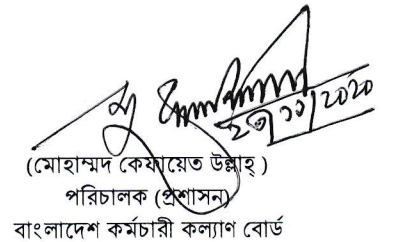 ২৩/১১/২০২০
(মোহাম্মদ কেফায়েত উল্লাহ)
পরিচালক (প্রশাসন)
বাংলাদেশ কর্মচারী কল্যাণ বোর্ড